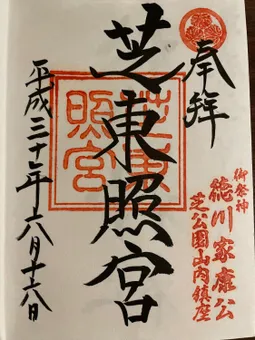 奉拝
御祭神
徳川家康公
芝公園山内鎮座
芝東照宮
芝東
照宮
平成三十年六月十六日